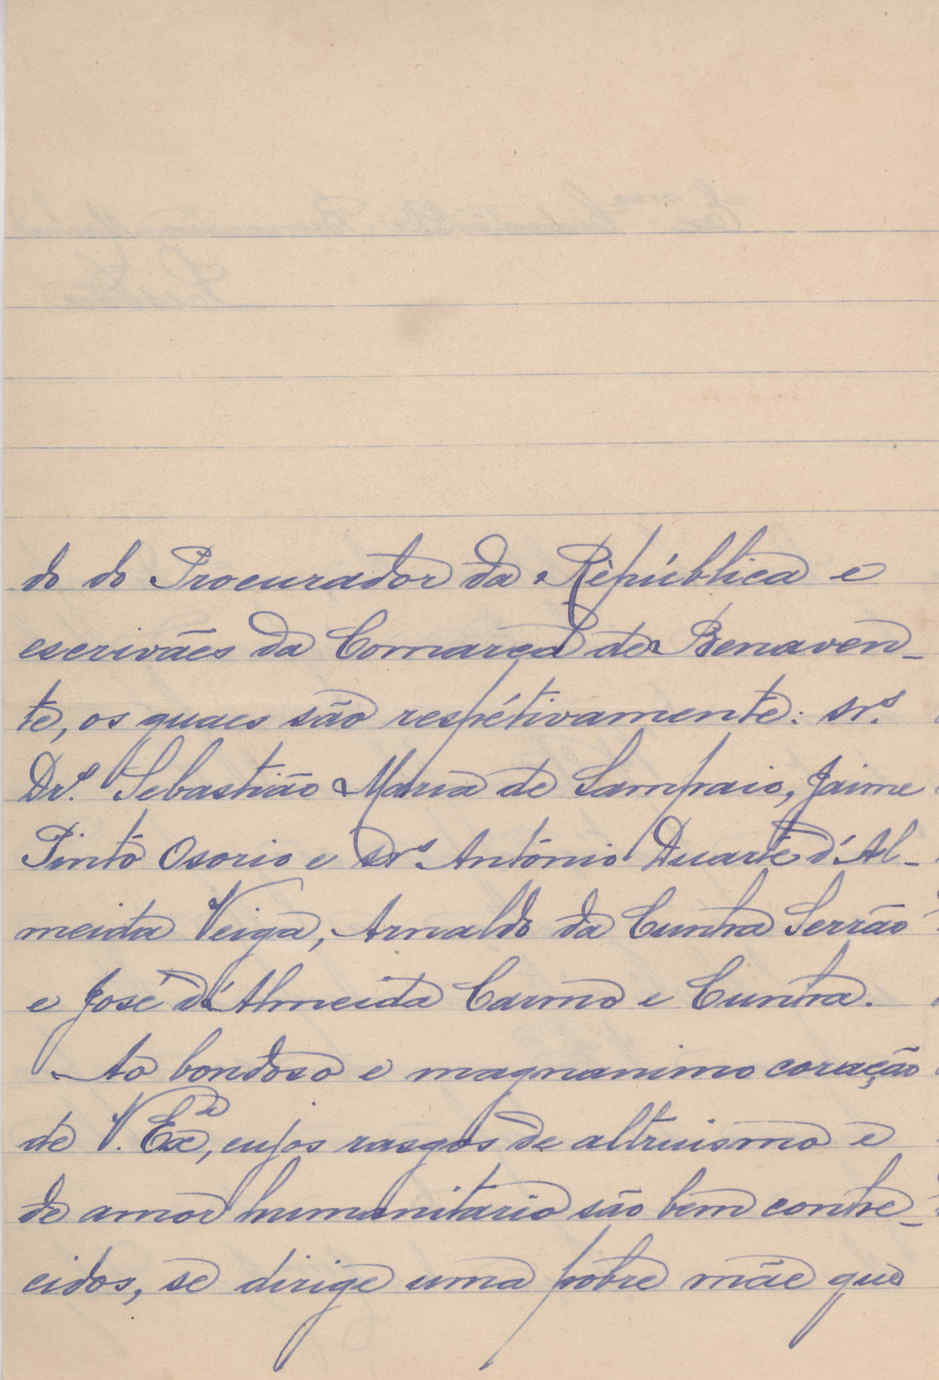 do do Procurador da República e
escrivães da Comarca de Benaven-
te, os quaes são respétivamente: Srs.
Dr. Sebastião Maria de Sampaio, Jaime
Pinto Osorio e Srs. António Duarte d'Al-
meida Veiga, Arnaldo da Cunha Serrão
e José d'Almeida Carmo e Cunha.
Ao bondoso e magnanimo coração
de V. Exa, cujos rasgos de altruismo e
de amor humanitario são bem conhe-
cidos, se dirige uma pobre mãe que